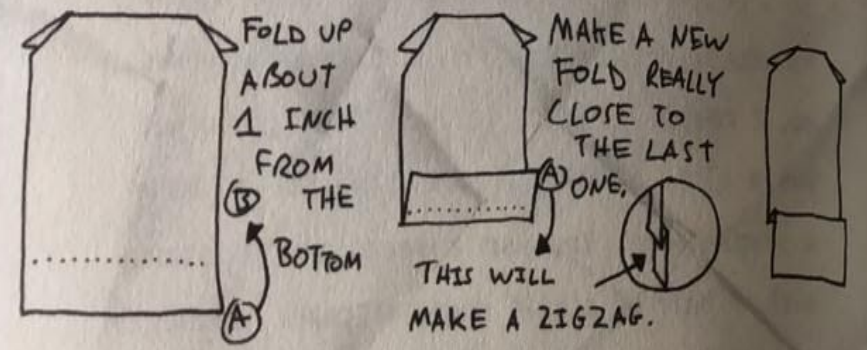 FOLD UP
ABOUT
1 INCH
FROM
B THE
BOTTOM
A
MAKE A NEW
FOLD REALLY
CLOSE TO
THE LAST
A ONE.
THIS WILL
MAKE A ZIGZAG.